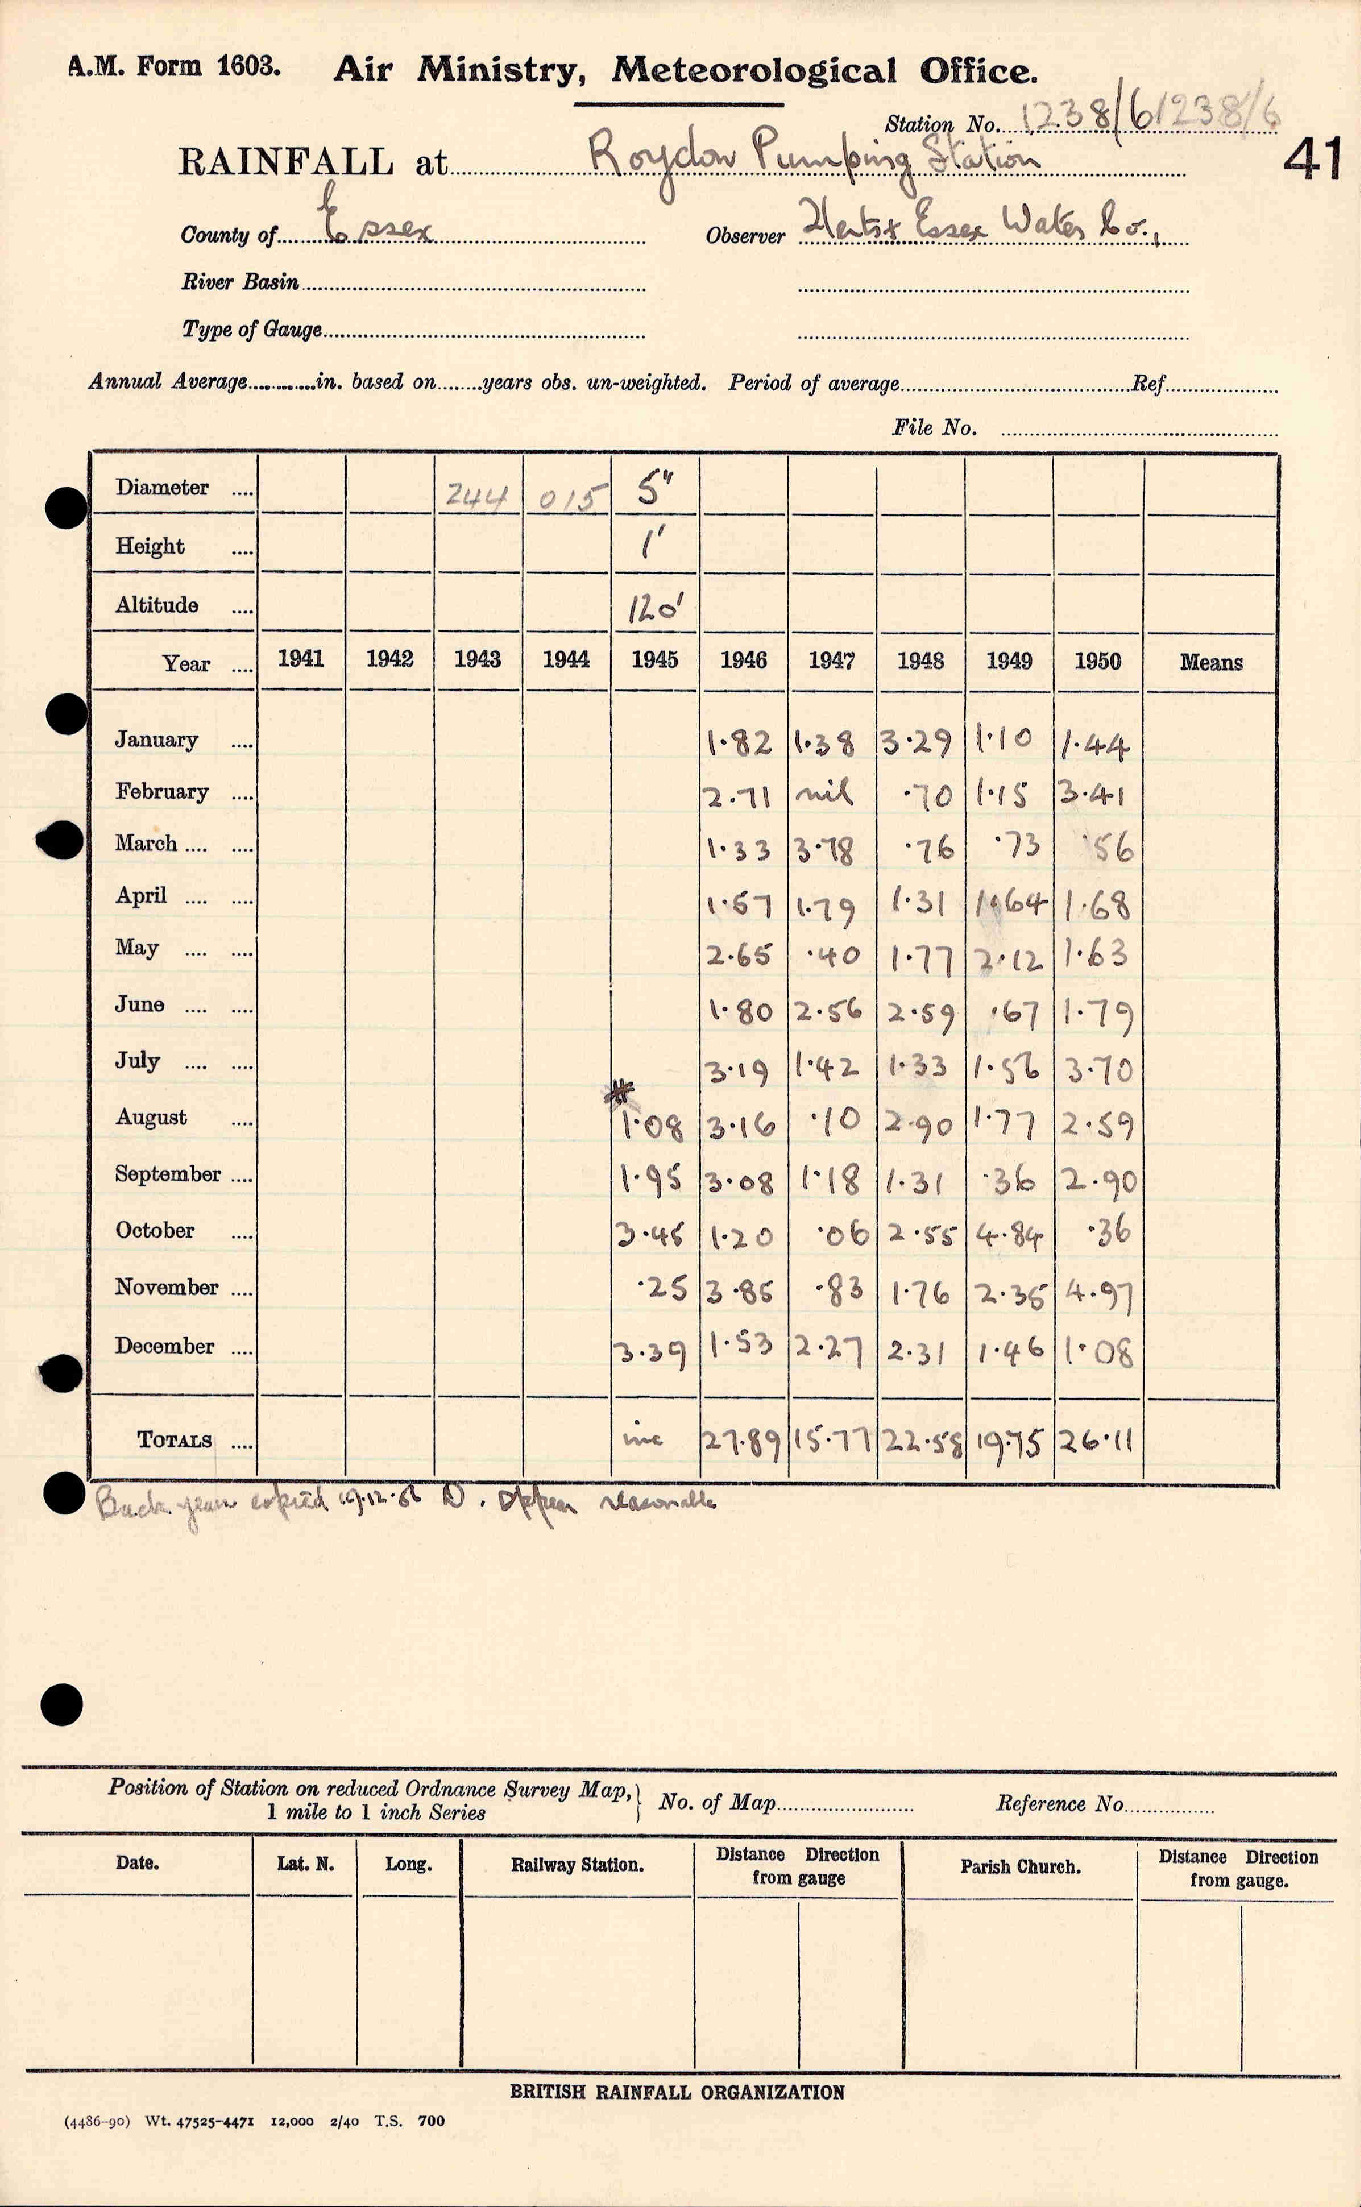 A.M. Form 1603. Air Ministry, Meteorological Office.
Station No. 1238/6 1238/6
RAINFALL at Roydon Pumping Station
41
County of Essex Observer Herts & Essex Water Co.,
River Basin
Type of Gauge
Annual Average in. based on years obs. un-weighted. Period of average Ref
File No.
Diameter 244 015 5"
Height 1'
Altitude 120'
Year 1941 1942 1943 1944 1945 1946 1947 1948 1949 1950 Means
January 1.82 1.38 3.29 1.10 1.44
February 2.71 nil .70 1.15 3.41
March 1.33 3.78 .76 .73 .56
April 1.57 1.79 1.31 1.64 1.68
May 2.65 .40 1.77 2.12 1.63
June 1.80 2.56 2.59 .67 1.79
July 3.19 1.42 1.33 1.56 3.70
August 1.08 3.16 .10 2.90 1.77 2.59
September 1.95 3.08 1.18 1.31 .36 2.90
October 3.45 1.20 .06 2.55 4.84 .36
November .25 3.85 .83 1.76 2.35 4.97
December 3.39 1.53 2.27 2.31 1.46 1.08
TOTALS inc 27.89 15.77 22.58 19.75 26.11
Back years copied 19.12.56 appear reasonable
Position of Station on reduced Ordnance Survey Map, } No. of Map Reference No
1 mile to 1 inch Series
Date. Lat. N. Long. Railway Station. Distance Direction from gauge Parish Church. Distance Direction from gauge.
BRITISH RAINFALL ORGANIZATION
(4486-90) Wt. 47525-4471 12,000 2/40 T.S. 700